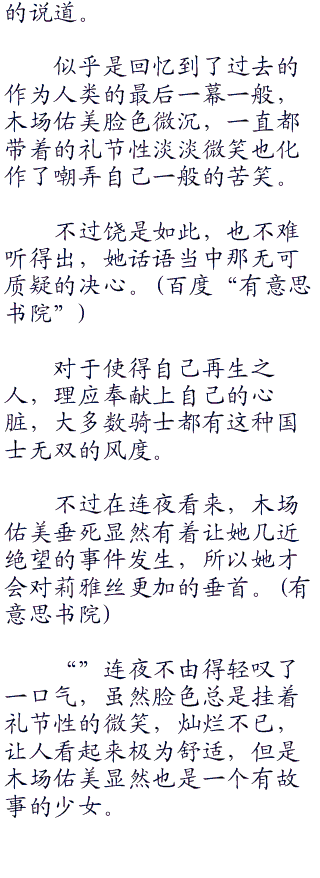 的说道。
似乎是回忆到了过去的
作为人类的最后一幕一般，
木场佑美脸色微沉，一直都
带着的礼节性淡淡微笑也化
作了嘲弄自己一般的苦笑。
不过饶是如此，也不难
听得出，她话语当中那无可
质疑的决心。(百度“有意思
书院”)
对于使得自己再生之
人，理应奉献上自己的心
脏，大多数骑士都有这种国
士无双的风度。
不过在连夜看来，木场
佑美垂死显然有着让她几近
绝望的事件发生，所以她才
会对莉雅丝更加的垂首。(有
意思书院)
“”连夜不由得轻叹了
一口气，虽然脸色总是挂着
礼节性的微笑，灿烂不已，
让人看起来极为舒适，但是
木场佑美显然也是一个有故
事的少女。